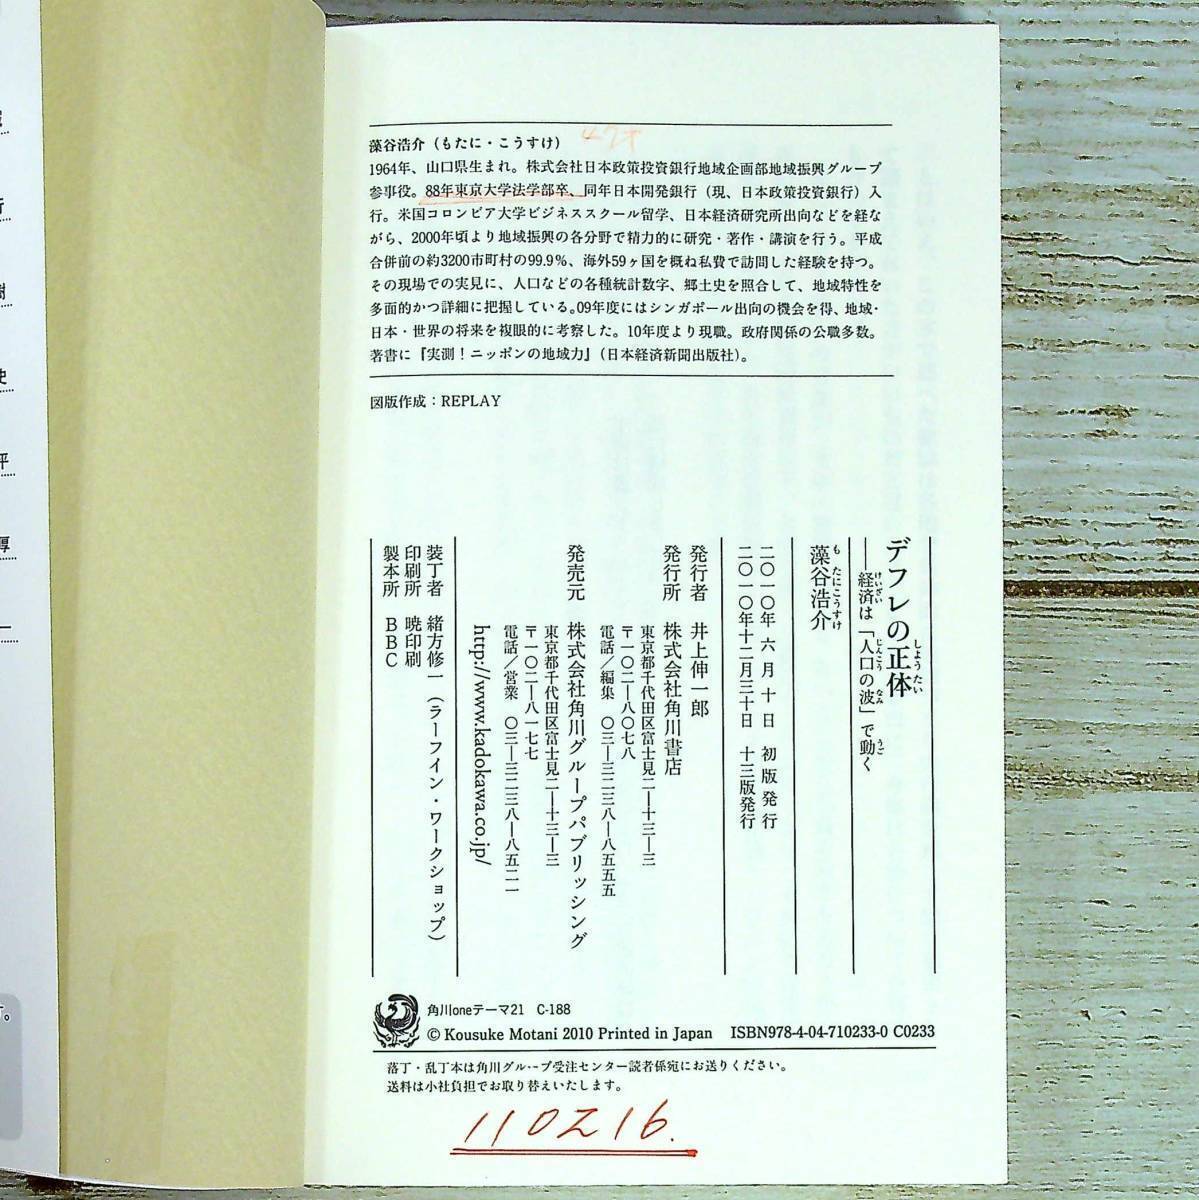 藻谷浩介(もたに・こうすけ)
1964年、山口県生まれ。株式会社日本政策投資銀行地域企画部地域振興グループ
参事役。88年東京大学法学部卒、同年日本開発銀行(現、日本政策投資銀行)入
行。米国コロンビア大学ビジネススクール留学、日本経済研究所出向などを経な
がら、2000年頃より地域振興の各分野で精力的に研究・著作・講演を行う。平成
合併前の約3200市町村の99.9%、海外59ヶ国を概ね私費で訪問した経験を持つ。
その現場での実見に、人口などの各種統計数字、郷土史を照合して、地域特性を
多面的かつ詳細に把握している。09年度にはシンガポール出向の機会を得、地域・
日本・世界の将来を複眼的に考察した。10年度より現職。政府関係の公職多数。
著書に『実測!ニッポンの地域力』(日本経済新聞出版社)。
図版作成:REPLAY
デフレの正体
しょうたい
――経済は「人口の波」で動く
けいざい じんこう なみ うご
藻谷浩介
もたにこうすけ
二〇一〇年 六月 十日 初版発行
二〇一〇年十二月三十日 十三版発行
発行者 井上伸一郎
発行所 株式会社角川書店
東京都千代田区富士見二―十三―三
〒一〇二―八〇七八
電話/編集 〇三―三二三八―八五五五
発売元 株式会社角川グループパブリッシング
東京都千代田区富士見二―十三―三
〒一〇二―八一七七
電話/営業 〇三―三二三八―八五二一
http://www.kadokawa.co.jp/
装丁者 緒方修一(ラーフイン・ワークショップ)
印刷所 暁印刷
製本所 BBC
角川oneテーマ21 C-188
© Kousuke Motani 2010 Printed in Japan ISBN978-4-04-710233-0 C0233
落丁・乱丁本は角川グループ受注センター読者係宛にお送りください。
送料は小社負担でお取り替えいたします。
110216.